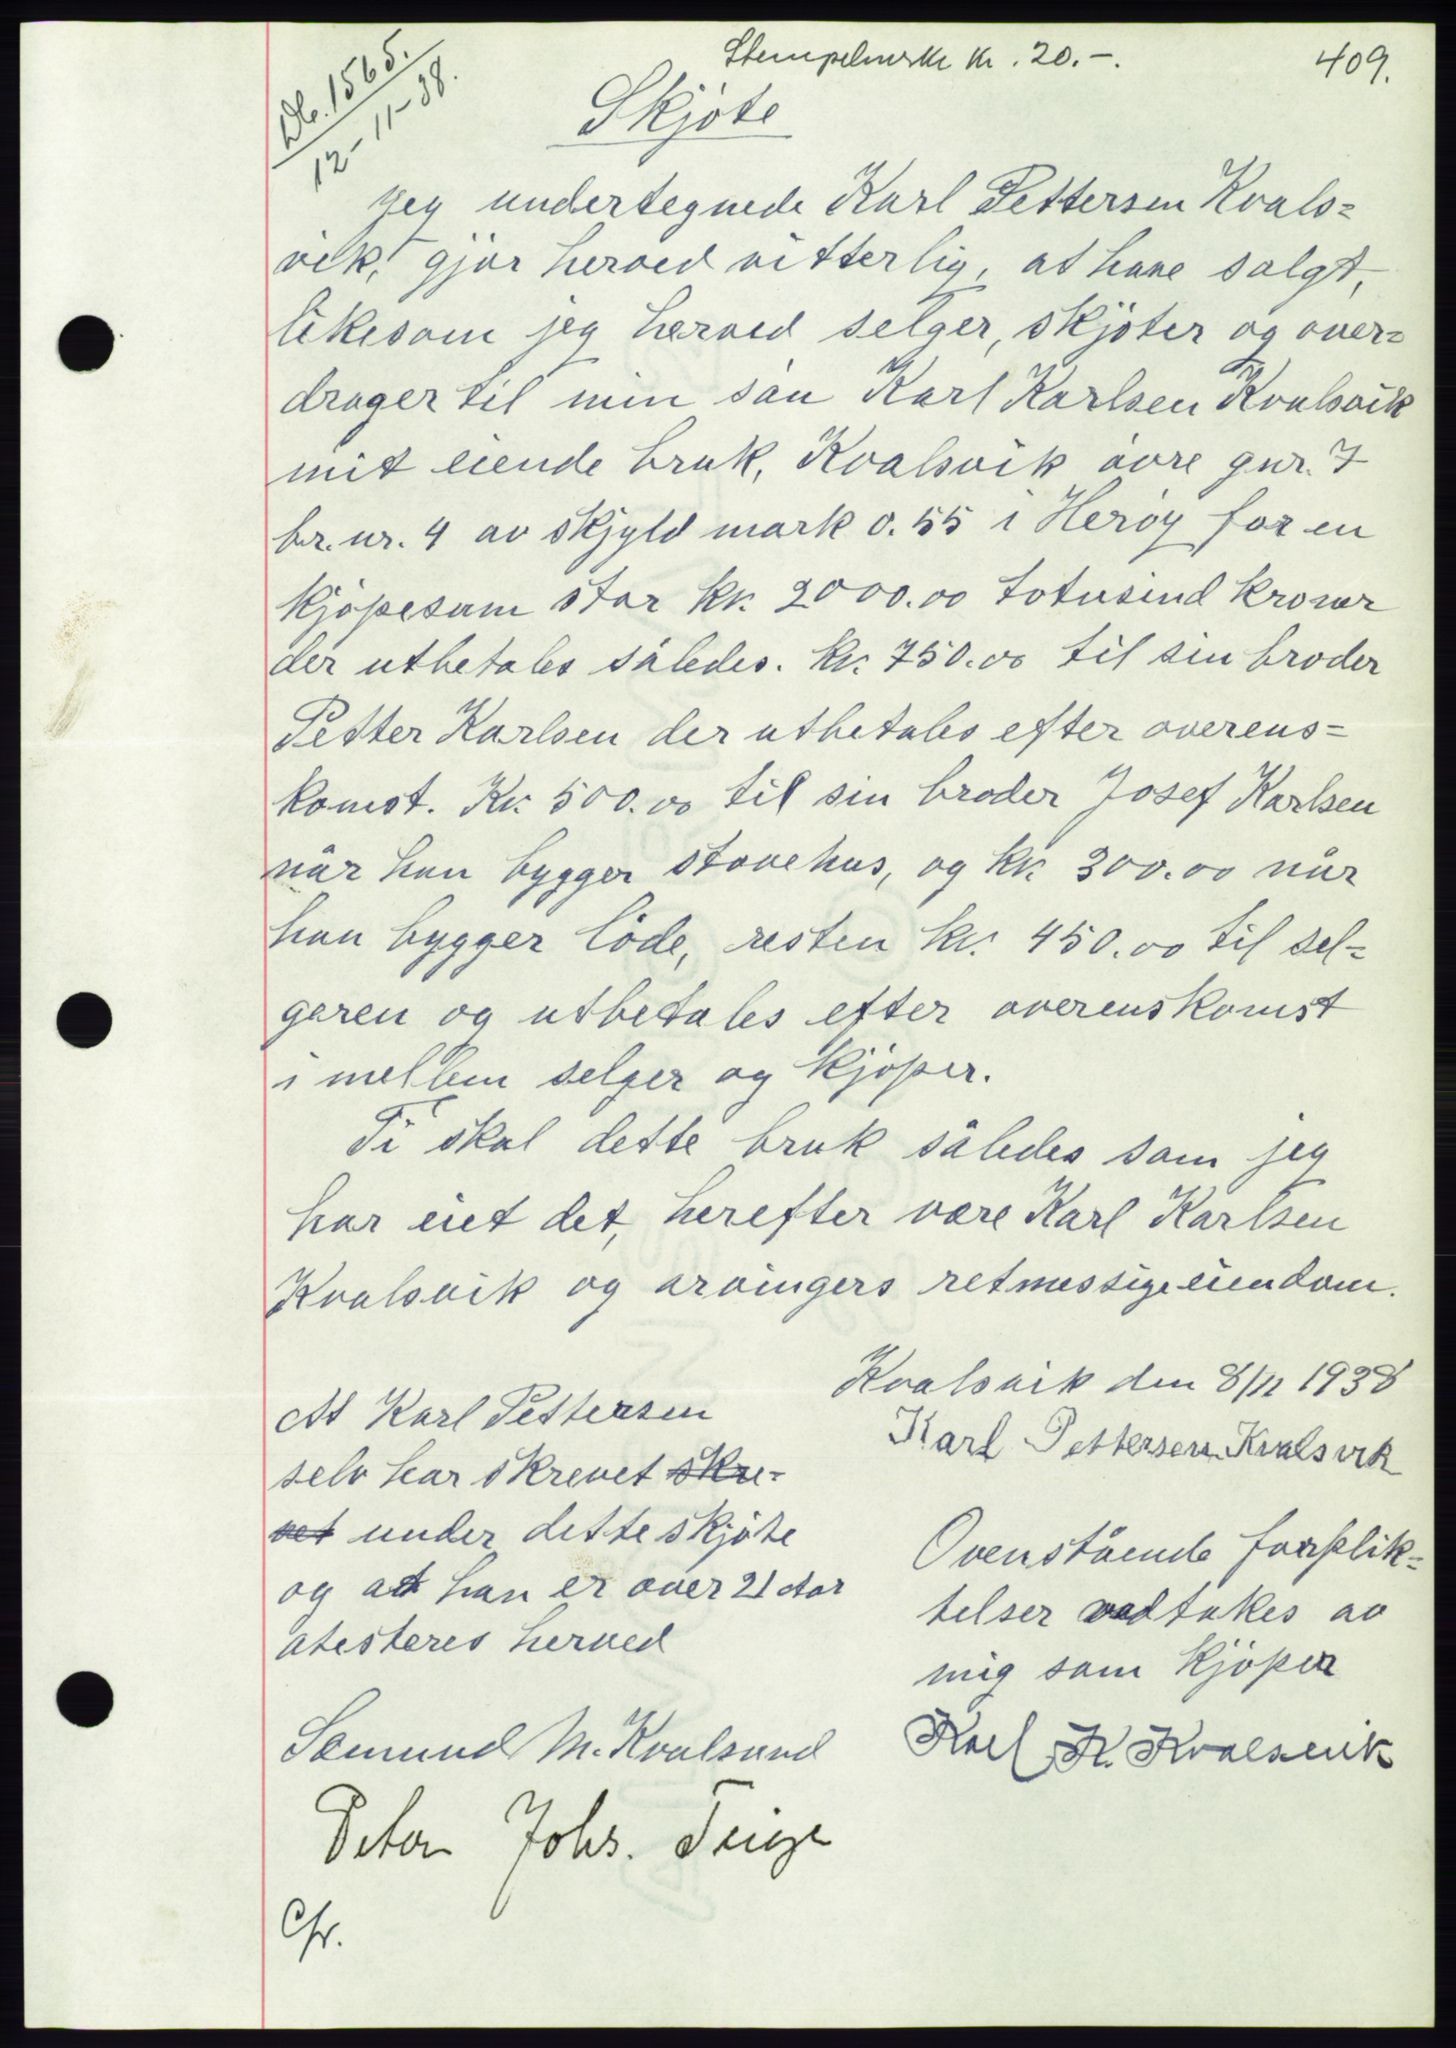 Stempelmerke kr. 20.-.
409.
Db. 1565.
12-11-38.
Skjöte
Jeg undertegnede Karl Pettersen Kvals=
vik, gjör herved vitterlig, at have solgt,
likesom jeg herved selger, skjöter og over=
drager til min sön Karl Karlsen Kvalsvik
mit eiende bruk, Kvalsvik övre gnr. 7
br.nr. 4 av skjyld mark 0.55 i Heröy for en
kjöpesum stor kr. 2000.00 totusind kroner
der utbetales således. kr. 750.00 til sin broder
Petter Karlsen der utbetales efter overens=
komst. Kr. 500.00 til sin broder Josef Karlsen
når han bygger stovehus, og kr. 300.00 når
han bygger löde, resten kr. 450.00 til sel=
geren og utbetales efter overenskomst
i mellem selger og kjöper.
Ti skal dette bruk således som jeg
har eiet det, herefter være Karl Karlsen
Kvalsvik og arvingers retmessige eiendom.
Kvalsvik den 8/11 1938
Karl Pettersen Kvalsvik
At Karl Pettersen
selv har skrevet skre-
vet under dette skjöte
og at han er over 21 Aar
atesteres herved
Sæmund M. Kvalsund
Peter Johs. Teige
Ovenstående forplik=
telser vedtakes av
mig som kjöper
Karl K. Kvalsvik